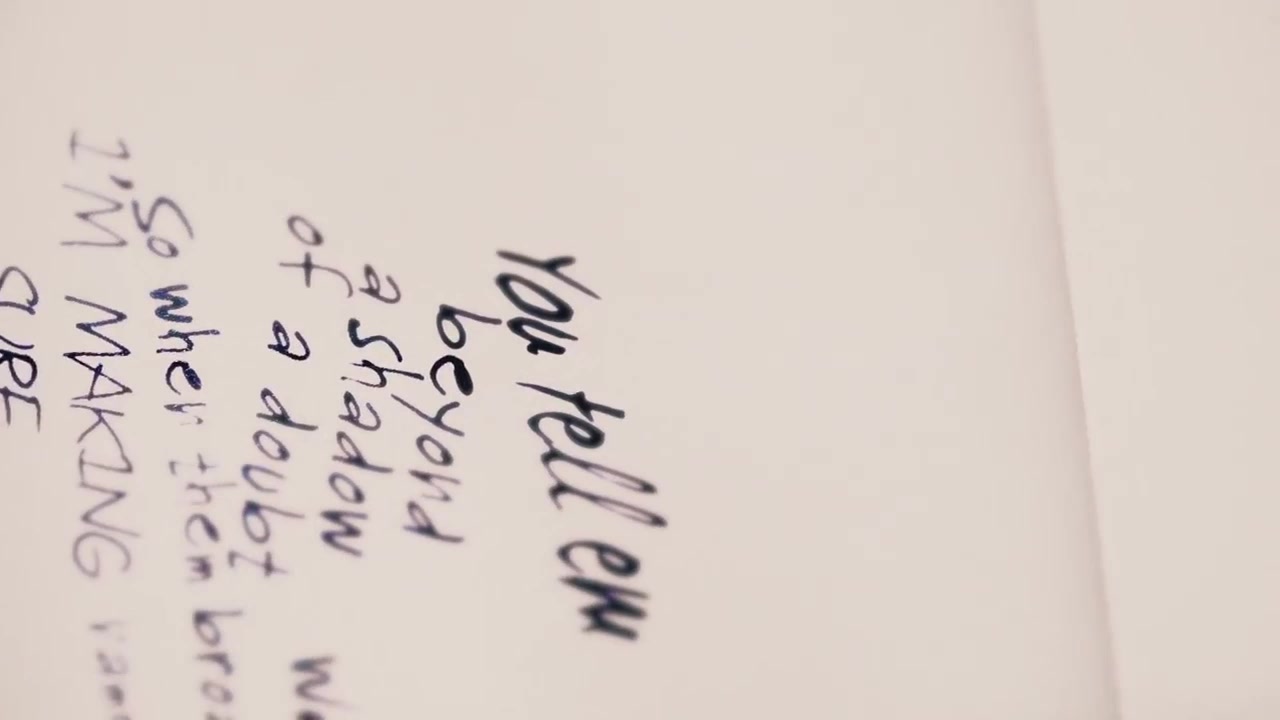 You tell em
beyond
a shadow
of a doubt
So when them
I'M MAKING
SURE